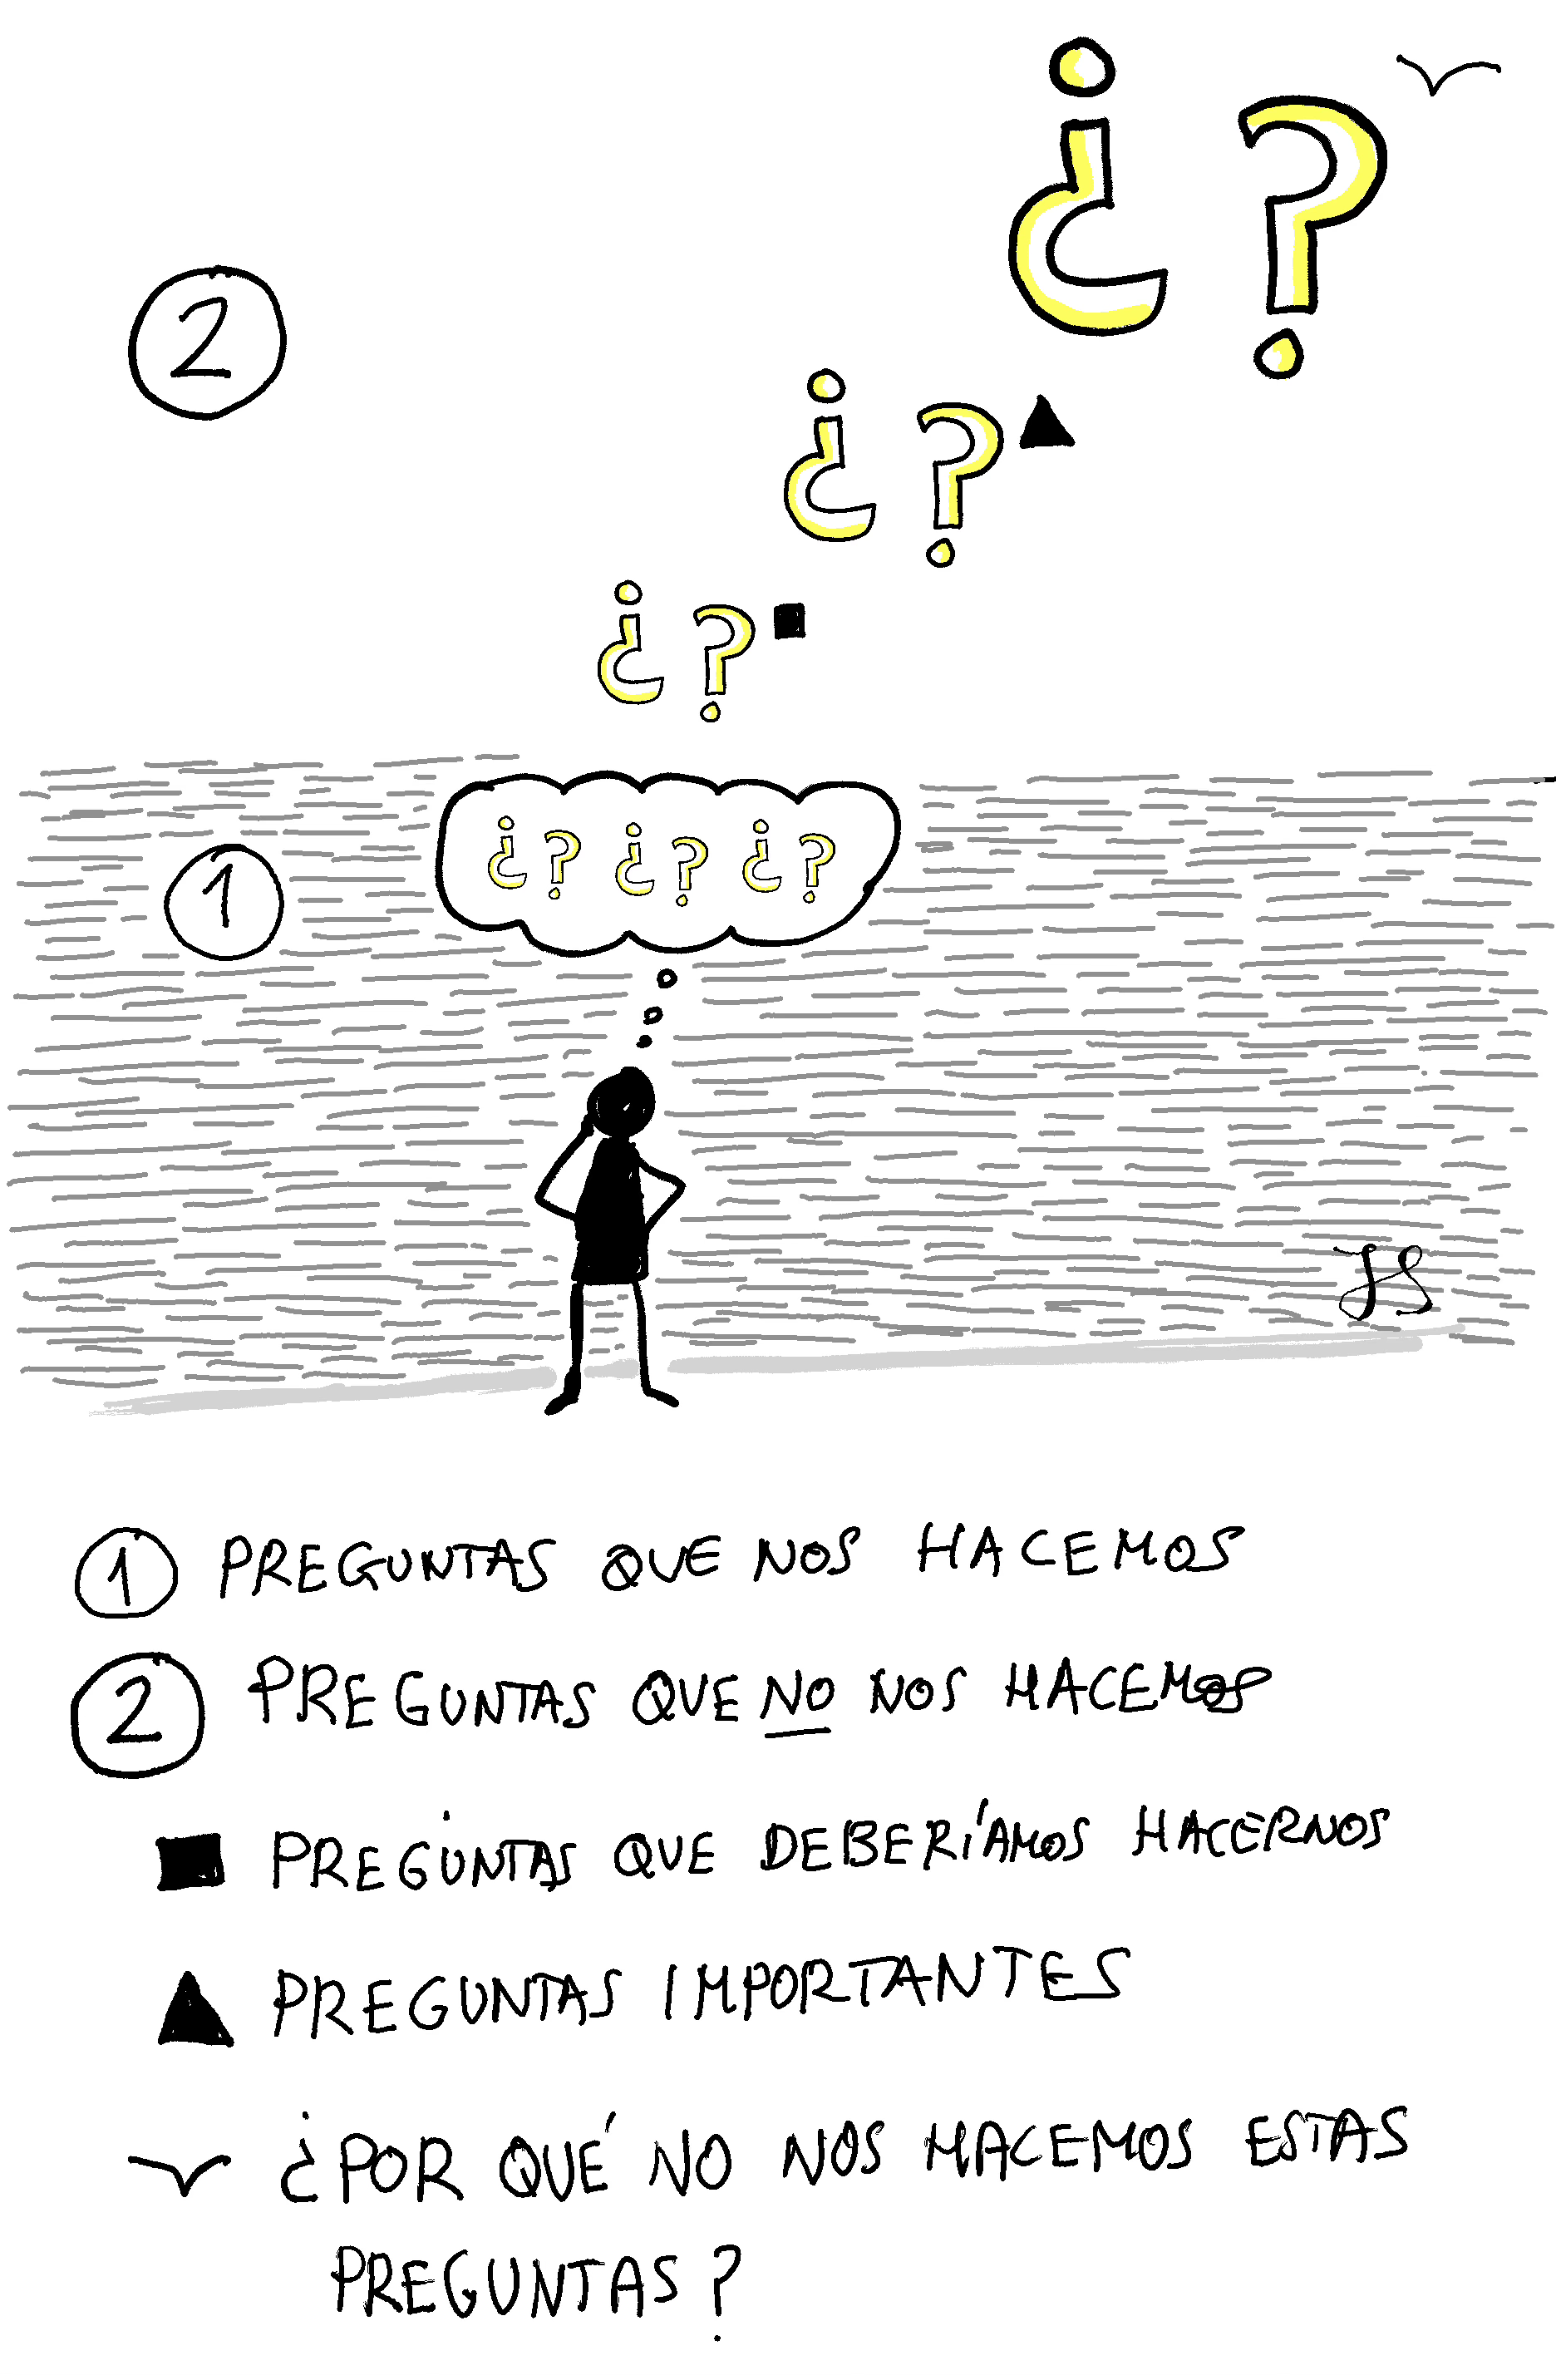 ¿ ?
2
¿ ?
¿ ?
¿? ¿? ¿?
1
JS
1 PREGUNTAS QUE NOS HACEMOS
2 PREGUNTAS QUE NO NOS HACEMOS
PREGUNTAS QUE DEBERÍAMOS HACERNOS
PREGUNTAS IMPORTANTES
¿POR QUÉ NO NOS HACEMOS ESTAS
PREGUNTAS?